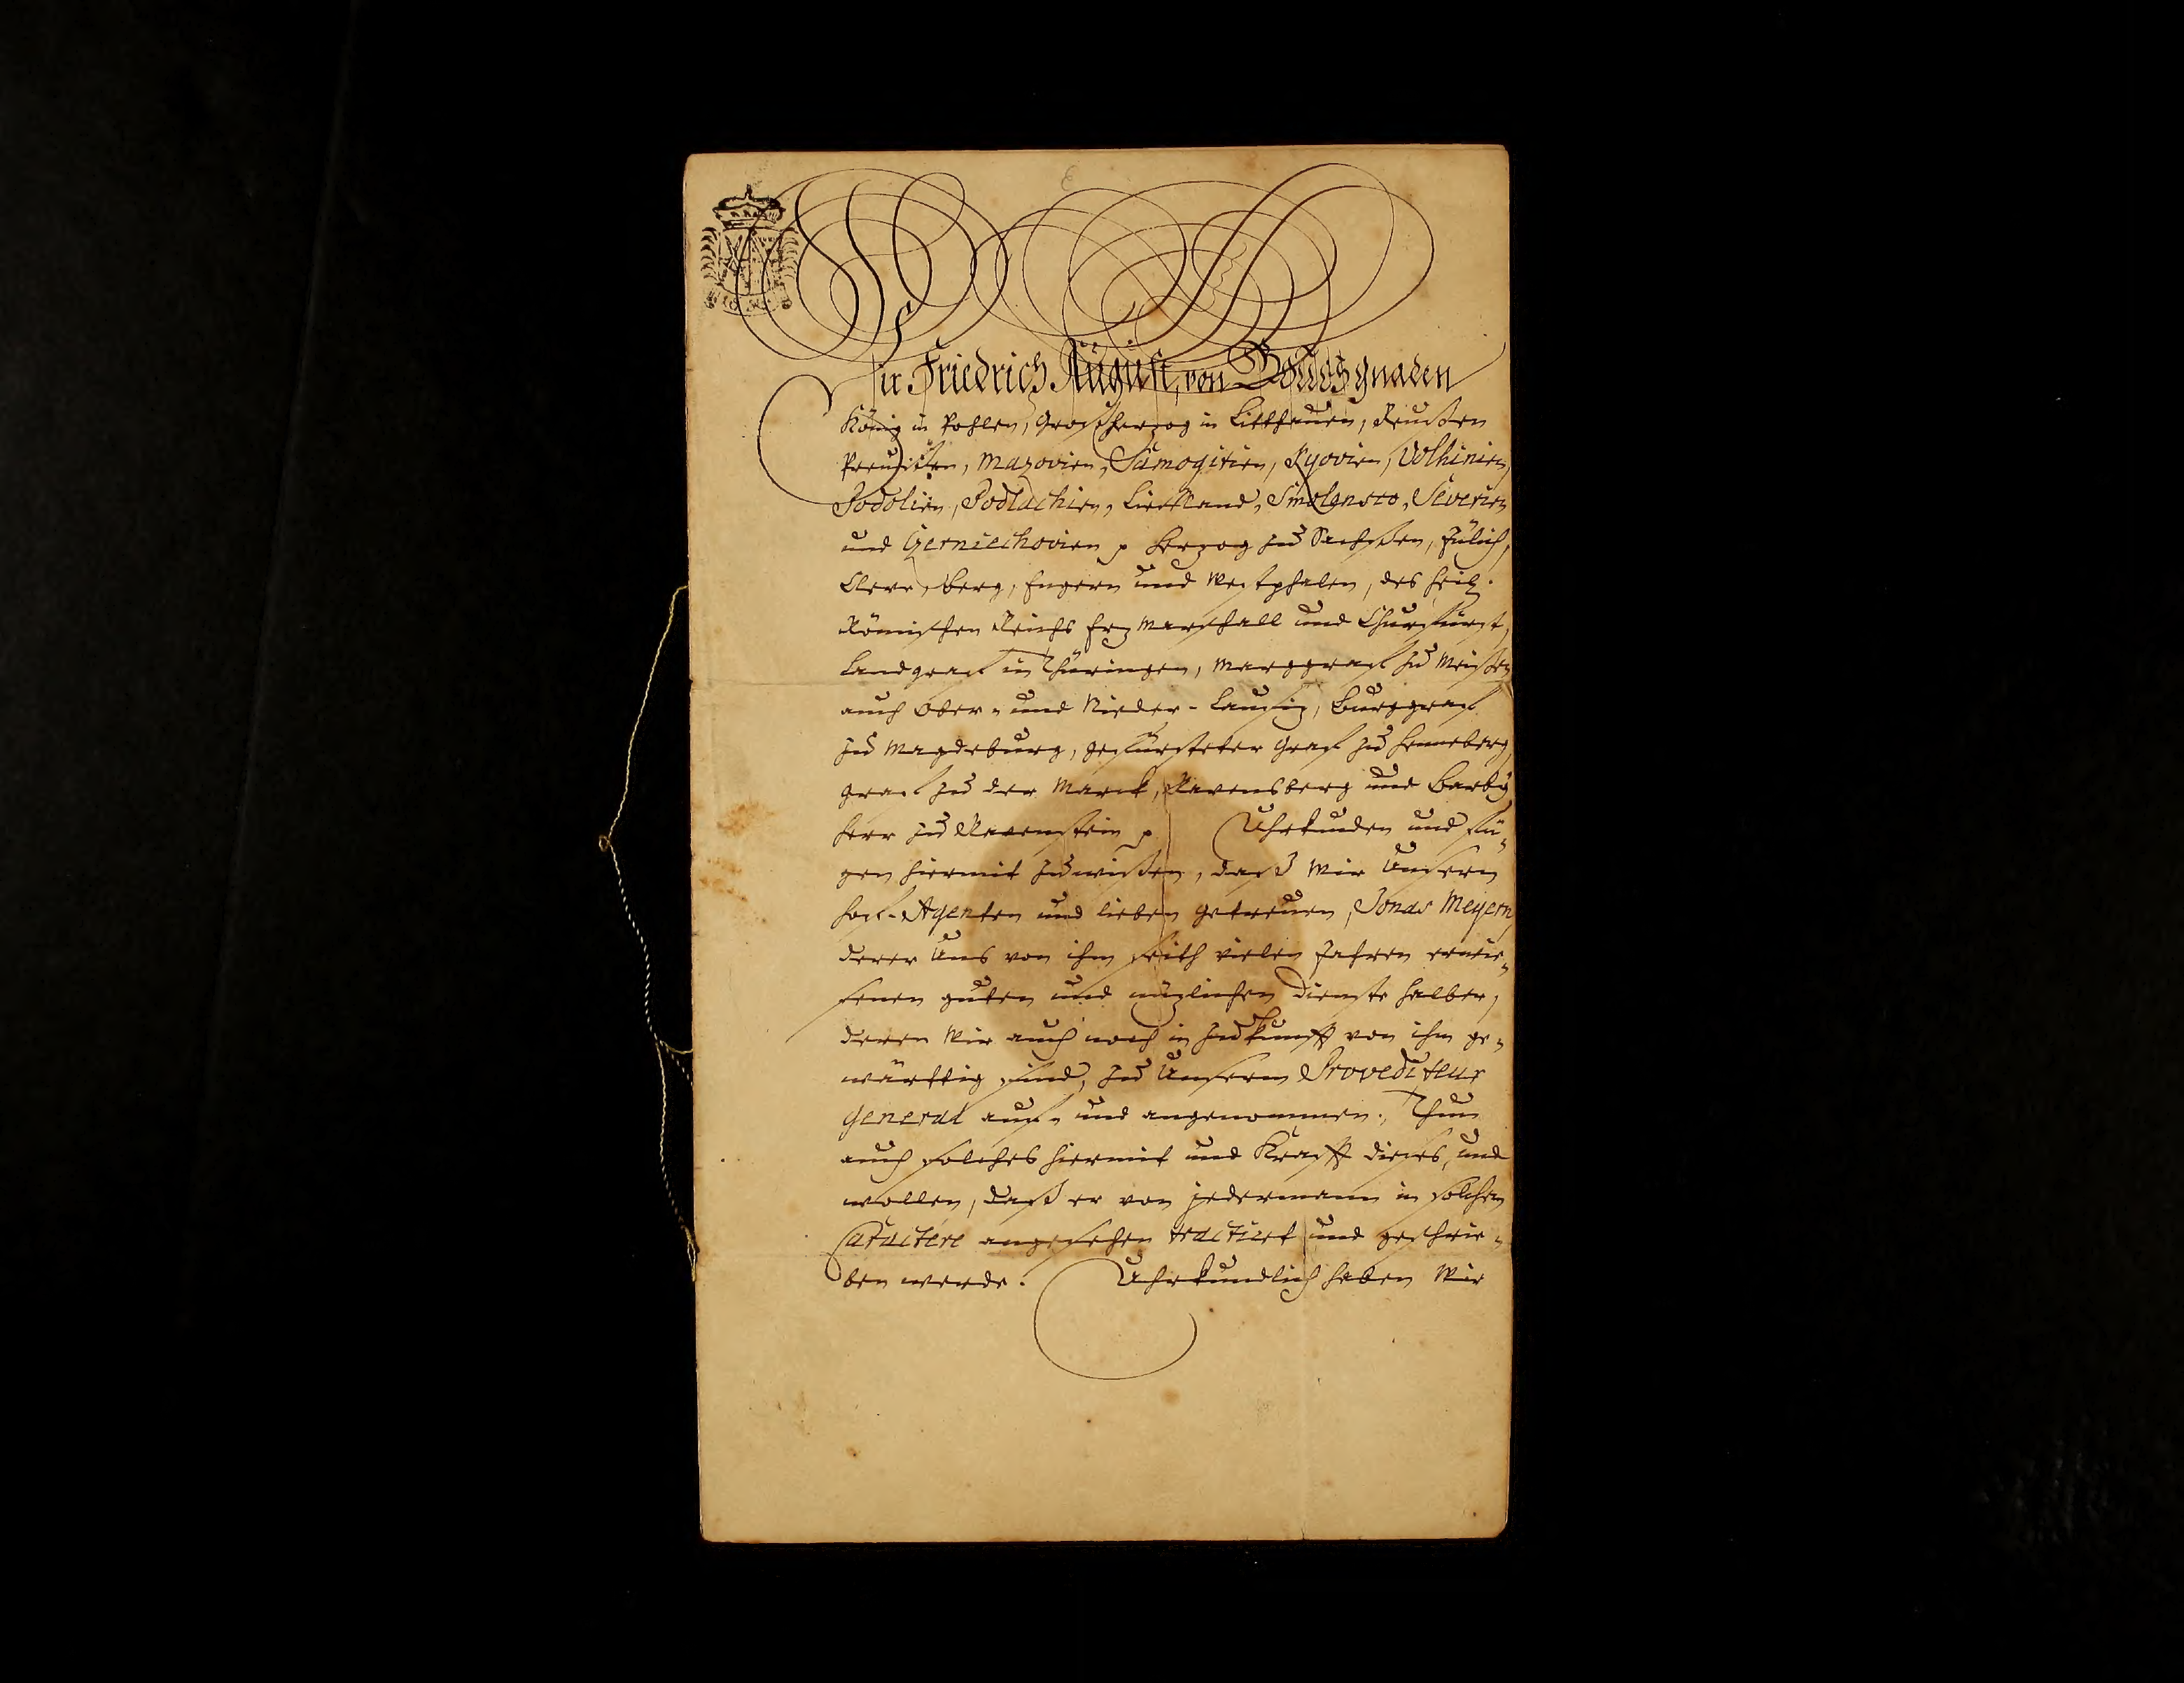 Wir Friedrich August, von Gottes gnaden
König in Pohlen, Großherzog in Litthauen, Reußen
Preußen, Mazovien, Samogitien, Kyovien, Volhinien,
Podolien, Podlachien, Liefland, Smolensco, Severien
und Czerniechovien p Herzog zu Sachßen, Jülich,
Cleve, Berg, Engern und Westphalen, des heil.
Römischen Reichs Erz Marschall und Churfürst,
Landgraf in Thüringen, Marggraf zu Meißen
auch Ober- und Nieder-Lausiz, Burggraf
zu Magdeburg, gefürsteter Graf zu Henneberg,
Graf zu der Marck, Ravensberg und Barby
Herr zu Ravenstein p Uhrkunden und fü-
gen hiermit zu wißen, daß Wir Unsern
Hof-Agenten und lieben getreuen, Jonas Meyern,
derer Uns von ihm seith vielen Jahren erwie-
senen guten und nüzlichen Dienste halber,
deren Wir auch noch in Zukunfft von ihm ge-
wärttig sind, zu Unserm Provediteur
General auf- und angenommen; Thun
auch solches hiermit und Krafft dieses, und
wollen, daß er von jedermann in solchem
Caractere angesehen tractiret und geschrie-
ben werde. Uhrkundlich haben Wir